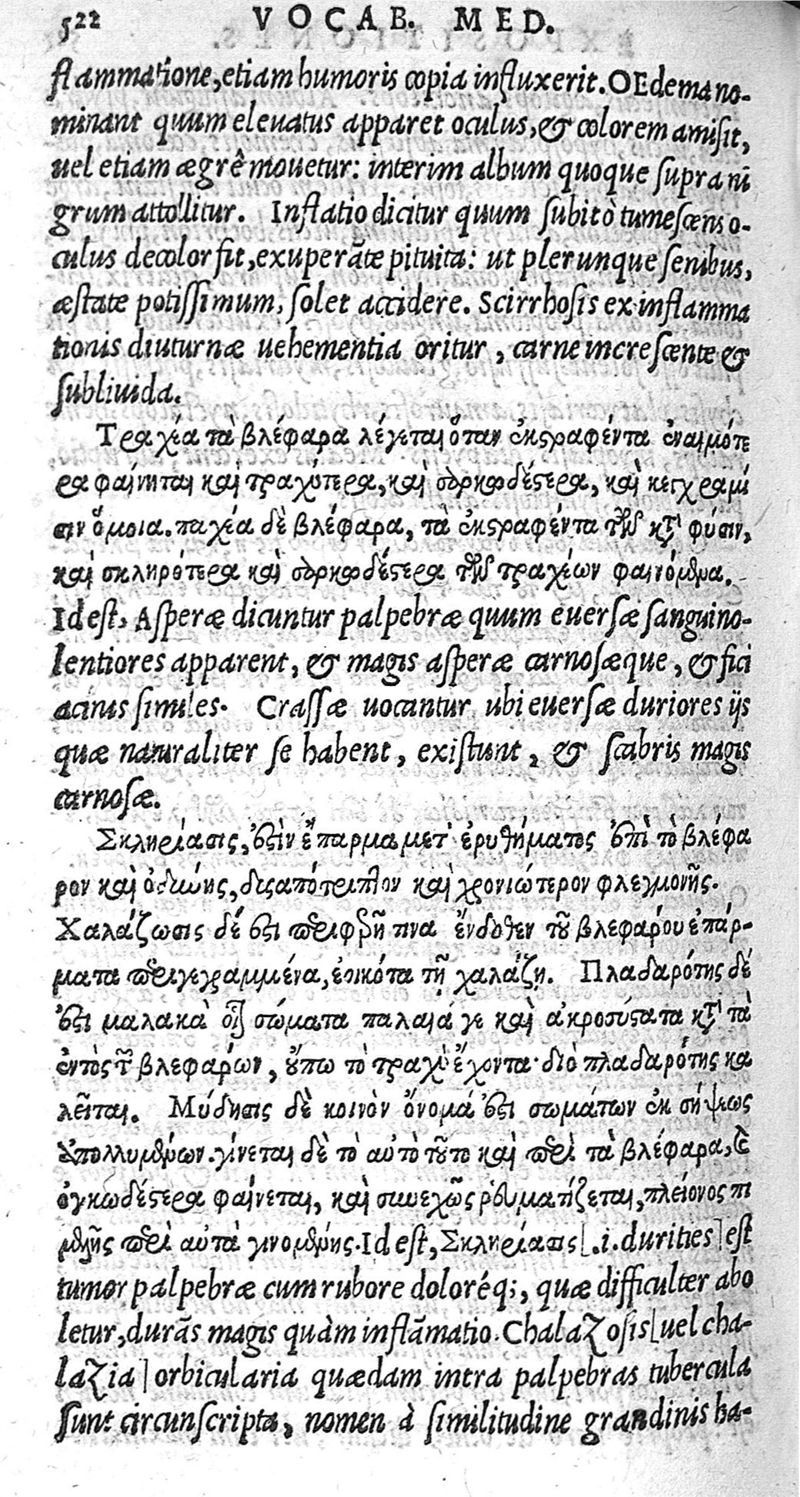 522 VOCAB. MED.
flammatione, etiam humoris copia influxerit. OEdema no-
minant quum eleuatus apparet oculus, & colorem amisit,
uel etiam ægrê mouetur: interim album quoque supra ni
grum attollitur. Inflatio dicitur quum subitò tumescens o-
culus decolor fit, exuperãte pituita: ut plerunque senibus,
æstate potissimum, solet accidere. Scirrhosis ex inflamma
tionis diuturnæ uehementia oritur, carne increscente &
subliuida.
Τραχία τὰ βλέφαρα λέγεται ὅταν ἐκστραφέντα ἐναιμότε
ρα φαίνηται καὶ τραχύτερα, καὶ σαρκωδέστερα, καὶ κεγχραμί
σιν ὅμοια. παχία δὲ βλέφαρα, τὰ ἐκστραφέντα τῶν κτ̀ φύσιν,
καὶ σκληρότερα καὶ σαρκωδέστερα τῶν τραχίων φαινόμενα.
Id est, Asperæ dicuntur palpebræ quum euersæ sanguino-
lentiores apparent, & magis asperæ carnosæque, & fici
acinis similes. Crassæ uocantur ubi euersæ duriores ijs
quæ naturaliter se habent, existunt, & scabris magis
carnosæ.
Σκληρίασις, ἐστὶν ἔπαρμα μετ' ἐρυθήματος ἐπὶ τὸ βλέφα
ρον καὶ ὀδύνης, δυσαπότριπτον καὶ χρονιώτερον φλεγμονῆς.
Χαλάζωσις δέ ἐστι περιφερῆ τινα ἔνδοθεν τοῦ βλεφάρου ἐπάρ-
ματα περιγεγραμμένα, ἐοικότα τῇ χαλάζῃ. Πλαδαρότης δέ
ἐστι μαλακὰ σώματα παλαιά γε καὶ κτ̀ τὰ
ἐντὸς τῶ βλεφάρων, οὔπω τὸ τραχὺ ἔχοντα· διὸ πλαδαρότης κα
λεῖται. Μύδησις δὲ κοινὸν ὄνομά ἐστι σωμάτων ἐκ σήψεως
γίνεται δὲ τὸ αὐτὸ τοῦτο καὶ περὶ τὰ βλέφαρα, &
ὀγκωδέστερα φαίνεται, καὶ συνεχῶς ῥευματίζεται, πλείονος πι
μελῆς περὶ αὐτὰ γινομένης. Id est, Σκληρίασις [.i. durities] est
tumor palpebræ cum rubore doloréq;, quæ difficulter abo
letur, durãs magis quàm inflãmatio. Chalazosis [uel cha-
lazia] orbicularia quædam intra palpebras tubercula
sunt circunscripta, nomen à similitudine grandinis ha-